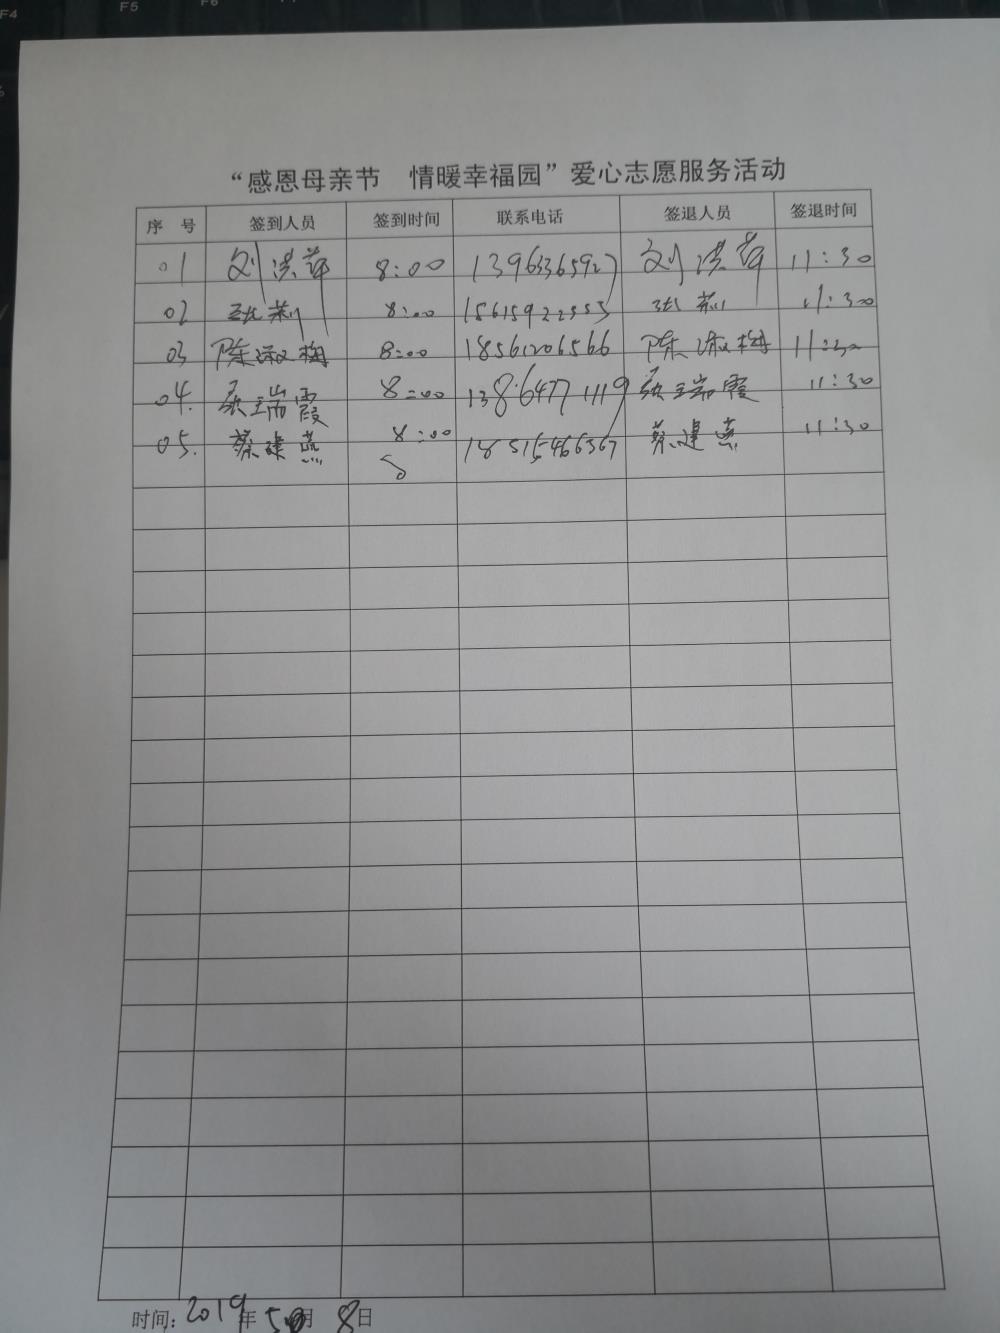 F4 F5 F6
“感恩母亲节 情暖幸福园”爱心志愿服务活动
序 号 签到人员 签到时间 联系电话 签退人员 签退时间
01 刘洪萍 8:00 13963365927 刘洪萍 11:30
02 8:00 15615922553 11:30
03 陈淑梅 8:00 18561206566 陈淑梅 11:30
04. 瑞霞 8:00 13864771119 瑞霞 11:30
05. 蔡建燕 8:00 18515466367 蔡建燕 11:30
时间: 2019年5月8日